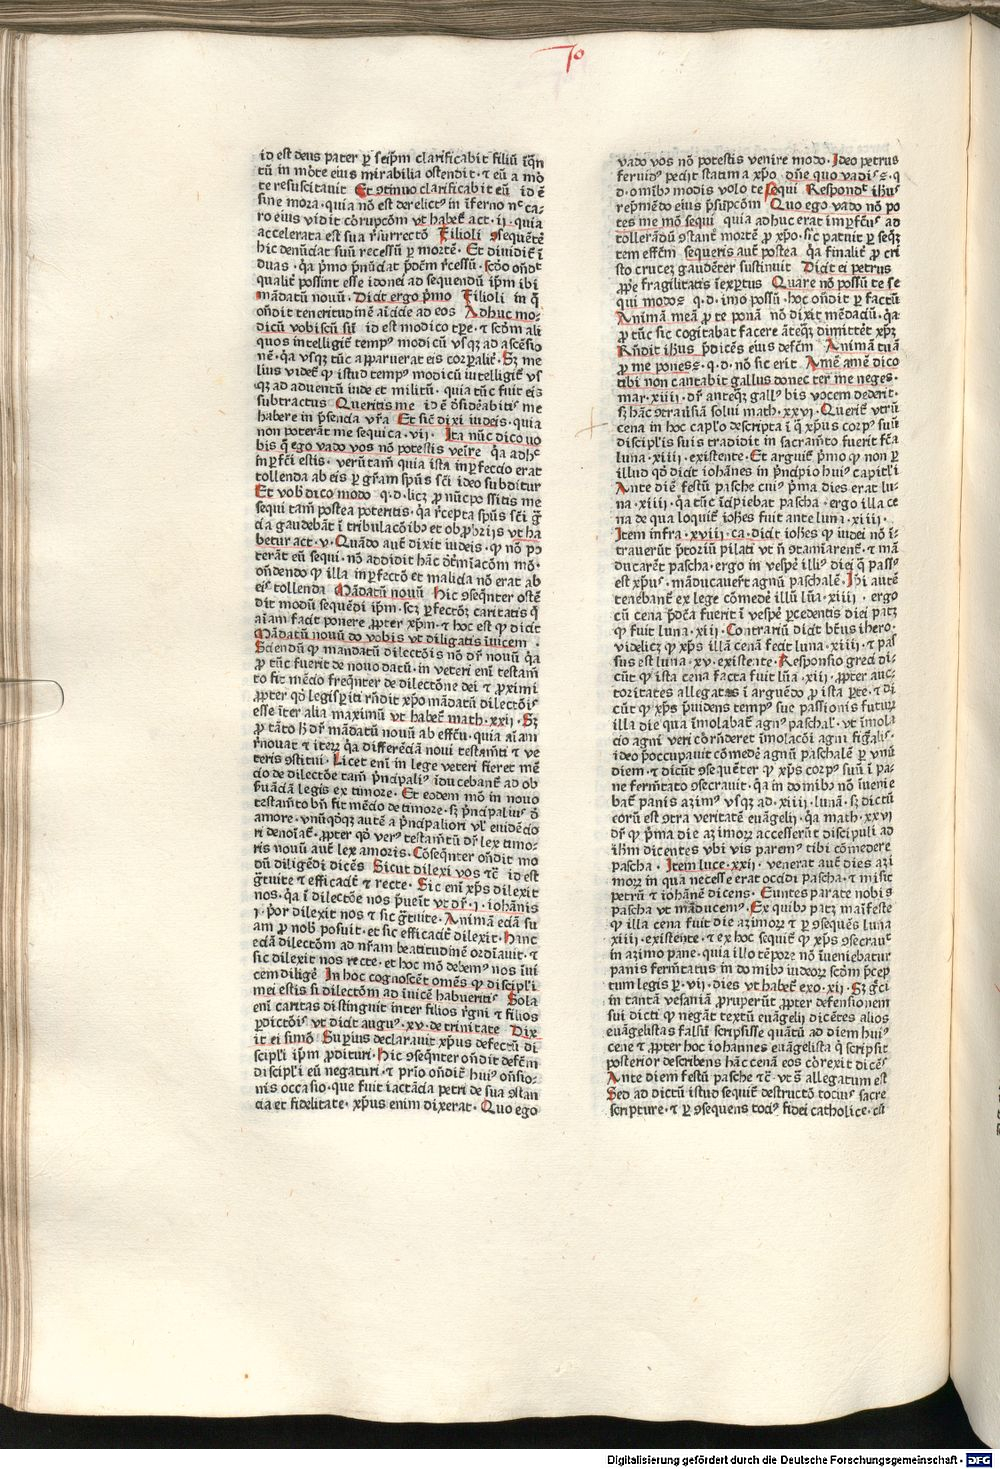 Jo
id est deus pater ꝑ seip̄m clarificabit filiū īqͣn
tū in mōte eius mirabilia ostendit · ⁊ eū a mor
te resuscitauit Et ꝯtinuo clarificabit eū id ē
sine mora · quia nō est derelictꝰ in īferno nec ca-
ro eius vidit corrupcōm vt habet᷑ act · ij · quia
accelerata est sua rͤsurrectō Filioli ꝯsequēt᷑
hic denūciat suū recessū ꝑ mortē · Et diuidit᷑ ī
duas · qͣ pͥmo p̄nūciat p̄dēm rͤcessū · scd̄o oñdit
qualit᷑ possint esse idonei ad sequendū ip̄m ibi
Mādatū nouū · Dicit ergo pͥmo Filioli in qͦ
oñdit teneritudinē aīcicie ad eos Adhuc mo-
dicū vobiscū sū id est modico tꝑe · ⁊ scd̄m ali
quos intelligit᷑ tempꝰ modicū vsqꝫ ad ascēsio
nē · qͣ vsqꝫ tūc apparuerat eis corꝑalit᷑ · Sꝫ me
lius videt᷑ ꝙ istud tempꝰ modicū intelligit᷑ vs
qꝫ ad aduentū iude et militū · quia tūc fuit eis
subtractus Queritis me id ē desiderabitis me
habere in p̄sencia vr̄a Et sic᷑ dixi iudeis · quia
non poterāt me sequi ca · vij · Ita nūc dico vo
bis qͥ ego vado vos nō potestis venire qͣ adhuc
īnꝑfecti estis · verūtam̄ quia ista inꝑfeccio erat
tollenda ab eis ꝑ gr̄am spūs scī ideo subditur
Et vobis dico modo · q · d · licꝫ ꝓ nūc possitis me
sequi tam̄ postea poteritis · qͣ rͤcepta spūs scī gr̄
cia gaudebāt ī tribulacōibꝫ et obprobrijs vt ha
betur act · v · Quādo aut᷑ dixit iudeis · ꝙ nō po
terāt eū sequi · nō addidit hāc determīacōm mō ·
oñdendo ꝙ illa inꝑfectō et malicia nō erat ab
eis tollenda Mādatū nouū Hic ꝯseqͤnter ostē
dit modū sequēdi ip̄m · scꝫ ꝑfectōꝫ caritatis qͣ
aīam facit ponere ꝓpter xp̄m · ⁊ hoc est ꝙ dicit
Mādatū nouū do vobis vt diligatis īuicem ·
Sciendū ꝙ mandatū dilectōis nō dr̄ nouū qͣ
ꝓ tūc fuerit de nouo datū · in veteri enī testam̄
to fit mēcio freqͤnter de dilectōne dei ⁊ ꝓximi
ꝓpter qd̄ legisꝑiti rn̄dit xp̄o mādatū dilectōis
esse īter alia maximū vt habet᷑ math · xxij · Sꝫ
ꝓ tāto hͦ dr̄ mādatū nouū ab effcū · quia aīam
rͤnouat ⁊ iteꝝ qͣ differēciā noui testam̄ti ⁊ ve
teris ꝯstitui · Licet enī in lege veteri fieret mē
cio de dilectōe tam̄ pͥncipaliꝰ īducebant᷑ ad ob
seruāciā legis ex timore · Et eodem mō in nouo
testam̄to bn̄ fit mēcio de timore · sꝫ pͥncipaliꝰ de
amore · vnūqd̄qꝫ autē a pͥncipaliori vl᷑ euidēcio
ri denoīat᷑ · ꝓpter qd̄ verꝰ testam̄tū dr̄ lex timo-
ris nouū aut᷑ lex amoris · Cōseqͤnter oñdit mo
dū diligēdi dicēs Sicut dilexi vos ⁊c̄ id est
gͣtuite ⁊ efficacit᷑ ⁊ recte · Sic enī xp̄s dilexit
nos · qͣ ī dilectōe nos p̄uenit vt dr̄ · j · iohānis
j · p̄or dilexit nos ⁊ sic gͣtuite · Animā eciā su
am ꝓ nobis posuit · et sic efficacit᷑ dilexit · Hanc
eciā dilectōm ad nr̄am beatitudinē ordīauit · ⁊
sic dilexit nos recte · et hoc mō debemꝰ nos īui
cem diligē᷑ In hoc cognoscēt omēs ꝙ discipli
mei estis si dilectōm ad īuicē habueritis Sola
enī caritas distinguit inter filios rͤgni ⁊ filios
ꝑdictōis vt dicit augꝰ · xv · de trinitate Dix
it ei simō Supͥus declarauit xp̄us defectū di
scipli ip̄m prodituri · Hic ꝯseqͤnter oñdit defcm̄
discipli eū negaturi · ⁊ pͥmo oñdit᷑ huiꝰ oñsio-
nis occasio · que fuit iactācia petri de sua ꝯstan
cia et fidelitate · xp̄us enim dixerat · Quo ego
vado vos nō potestis venire modo · Ideo petrus
feruidꝰ peciit statim a xp̄o dn̄e quo vadis · q
d · omibꝰ modis volo te sequi Respondet ihūs
rep̄mēdo eius p̄sūpcōm Quo ego vado nō po
tes me mō sequi quia adhuc erat imꝑfectꝰ ad
tollerādū ꝯstant᷑ mortē ꝓ xp̄o · sic patuit ꝑ seqꝫ
tem effcm̄ sequeris aut᷑ postea qͣ finalit᷑ ꝓ cri
sto crucez gaudēter sustinuit Dicit ei petrus
ꝓpͥe fragilitatis īexꝑtus Quare nō possū te se
qui modo · q · d · īmo possū · hoc oñdit ꝑ factū
Animā meā ꝓ te ponā nō dixit mēdaciū · qͣ
ꝓ tūc sic cogitabat facere āteqͣꝫ dimittēt xp̄ꝫ
Rn̄dit ihūs p̄dicēs eius defcm̄ Animā tuā
ꝓ me pones · q · d · nō sic erit Amē amē dico
tibi non cantabit gallus donec ter me neges ·
mar · xiiij · dr̄ anteqͣꝫ gallꝰ bis vocem dederit ·
sꝫ hāc ꝯtrarietatē solui math · xxvj · Querit᷑ vtrū
cena in hoc caplo descripta ī qͣ xp̄us corpꝰ suū
disciplis suis tradidit in sacram̄to fuerit fc̄a
luna · xiiij · existente · Et arguit᷑ pͥmo ꝙ non ꝑ
illud qd̄ dicit iohānes in pͥncipio huiꝰ capitli
Ante diē festū pasche cuiꝰ pͥma dies erat lu-
na · xiiij · qͣ tūc īcipiebat pascha · ergo illa ce
na de qua loquit᷑ ioh̄es fuit ante luna · xiiij ·
Item infra · xviij · ca · dicit ioh̄es ꝙ iudei nō ī-
trauerūt pretoriū pilati vt nō ꝯtamīarent᷑ · ⁊ mā
ducarēt pascha · ergo in vespe᷑ illiꝰ diei qͦ passꝰ
est xp̄us · māducauerūt agnū paschalē · Ip̄i autē
tenebant᷑ ex lege comede᷑ illū lūa · xiiij · ergo
cū cena p̄dca fuerit ī vespe᷑ p̄cedentis diei patꝫ
ꝙ fuit luna · xiij · Contrariū dicit bt̄us ihero ·
videlicꝫ ꝙ xp̄s illā cenā fecit luna · xiiij · ⁊ pas
sus est luna · xv · existente · Responsio greci di-
cūt ꝙ ista cena facta fuit lūa · xiij · ꝓpter auc-
toritates allegatas ī arguēdo ꝓ ista ꝑte · ⁊ di
cūt ꝙ xp̄s p̄uidens tempꝰ sue passionis futuꝝ
illa die qua īmolabat᷑ agnꝰ paschal᷑ · vt īmola
cio agni veri corrn̄deret īmolacōi agni figͣlis ·
ideo p̄occupauit comede᷑ agnū paschalē ꝑ vnū
diem · ⁊ dicūt ꝯsequēter ꝙ xp̄s corpꝰ suū ī pa-
ne ferm̄tato ꝯsecrauit · qͣ in domibꝰ nō īuenie
bat᷑ panis azimꝰ vsqꝫ ad · xiiij · lunā · sꝫ dictū
eorū est ꝯtra veritatē euāgelij · qͣ math · xxvj
dr̄ ꝙ pͥma die azimoꝝ accesserūt discipuli ad
ih̄m dicentes vbi vis paremꝰ tibi comedere
pascha · Item luce · xxij · venerat aut᷑ dies azi
moꝝ in qua necesse erat occidi pascha · ⁊ misit
petrū ⁊ iohānē dicens · Euntes parate nobis
pascha vt māducemꝰ · Ex quibꝰ patꝫ manifeste
ꝙ illa cena fuit die azimoꝝ ⁊ ꝑ ꝯsequēs luna
xiiij · existente · ⁊ ex hoc sequit᷑ ꝙ xp̄s ꝯsecrauit
in azimo pane · quia illo tēpore nō īueniebatur
panis ferm̄tatus in domibꝰ iudeoꝝ scd̄m p̄cep
tum legis ꝑ · vij · dies vt habet᷑ exo · xij · Sꝫ gͤci
in tantā vesaniā ꝓruperūt ꝓpter defensionem
sui dicti ꝙ negāt textū euāgelij dicētes alios
euāgelistas falsū scripsisse quātū ad diem huiꝰ
cene ⁊ ꝓpter hoc iohannes euāgelista qͥ scripsit
posterior describens hāc cenā eos correxit dicēs
Ante diem festū pasche ⁊c̄ · vt s̄ allegatum est
Sed ad dictū istud sequit᷑ destructō tociꝰ sacre
scripture · ⁊ ꝑ ꝯsequens tociꝰ fidei catholice · cū
Digitalisierung gefördert durch die Deutsche Forschungsgemeinschaft - DFG